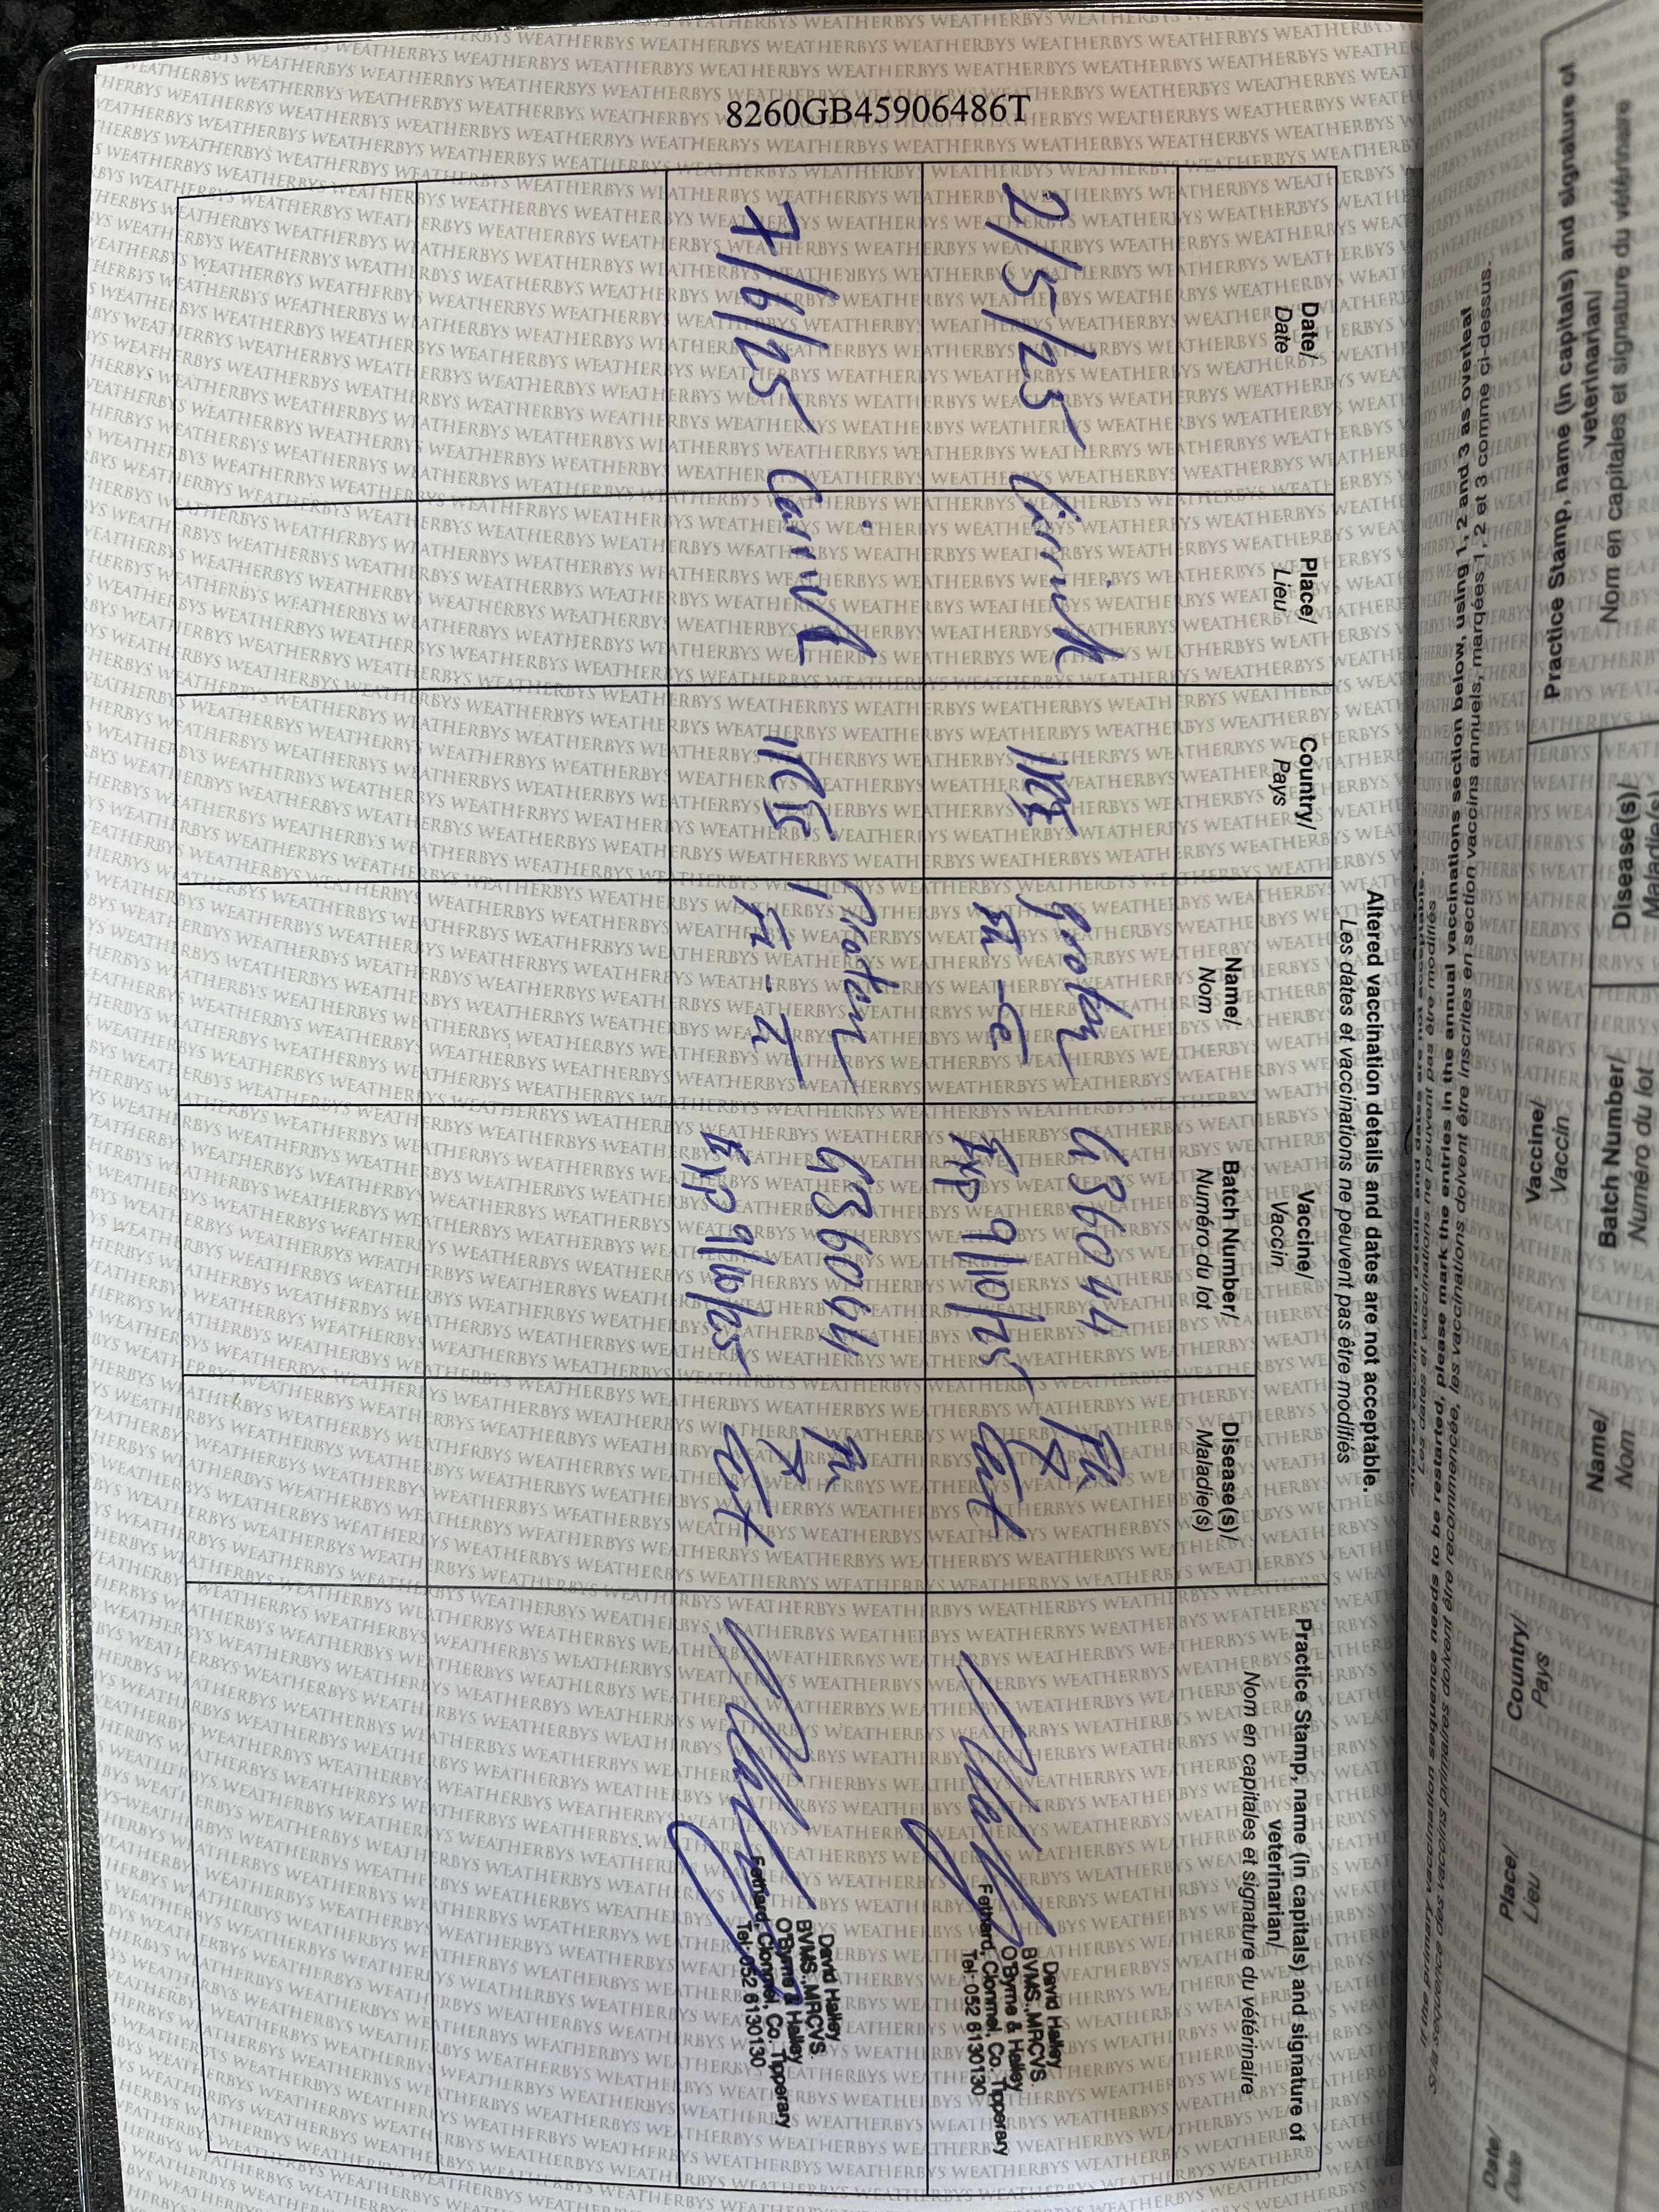 8260GB45906486T
Altered vaccination details and dates are not acceptable.
Les dates et vaccinations ne peuvent pas être modifiés
Date/
Date
Place/
Lieu
Country/
Pays
Vaccine/
Vaccin
Name/
Nom
Batch Number/
Numéro du lot
Disease(s)/
Maladie(s)
Practice Stamp, name (in capitals) and signature of
veterinarian/
Nom en capitales et signature du vétérinaire
2/5/25
IRE
Proteq
G36044
Exp 9/10/25
Flu
Tet
David Halley
BVMS., MRCVS.
O'Byrne & Halley
Fethard, Clonmel, Co. Tipperary
Tel: 052 6130130
7/6/25
IRE
Proteq
G36044
Exp 9/10/25
Flu
Tet
David Halley
BVMS., MRCVS.
O'Byrne & Halley
Fethard, Clonmel, Co. Tipperary
Tel: 052 6130130
If the primary vaccination sequence needs to be restarted, please mark the entries in the annual vaccinations section below, using 1, 2 and 3 as overleaf
Si la séquence des vaccins primaires doivent être recommencée, les vaccinations doivent être inscrites en section vaccins annuels, marqées 1, 2 et 3 comme ci-dessus.
Date/
Date
Place/
Lieu
Country/
Pays
Vaccine/
Vaccin
Name/
Nom
Batch Number/
Numéro du lot
Disease(s)/
Maladie(s)
Practice Stamp, name (in capitals) and signature of
veterinarian/
Nom en capitales et signature du vétérinaire
WEATHERBYS